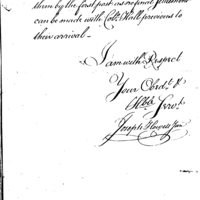 them by the first post as no final
can be made with Col. Hall previous to
their arrival -
I am with Respect
Your Obedt. &
Hble Servt.
Joseph Howell Jun